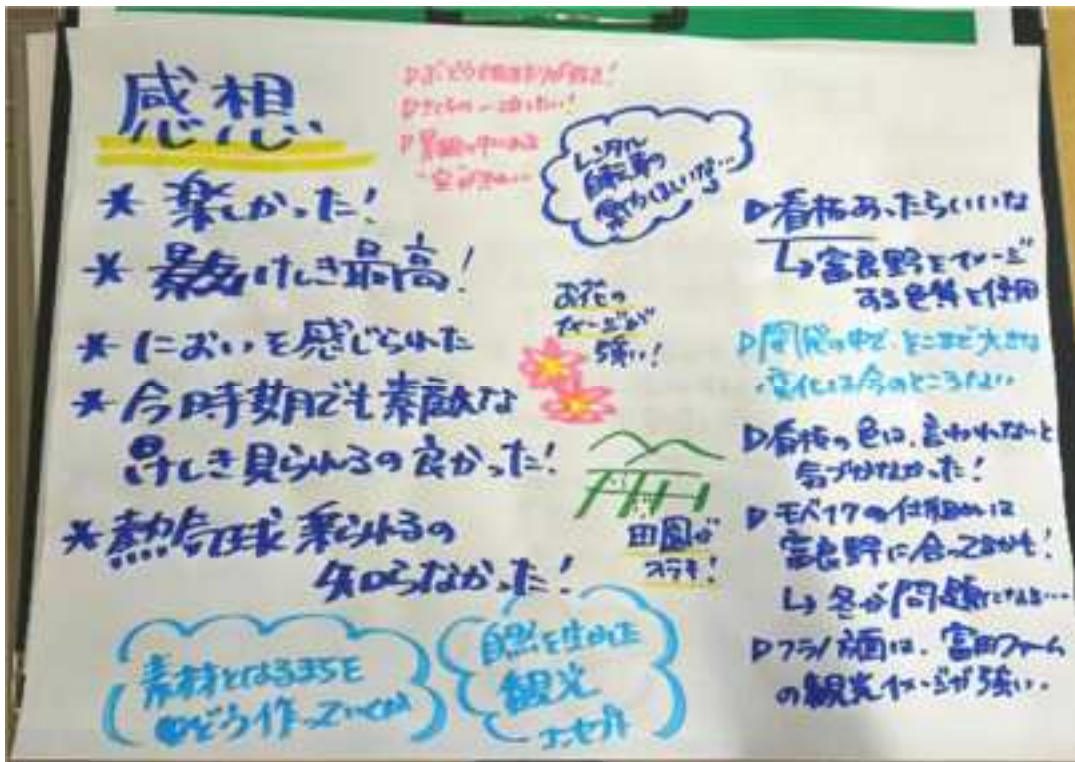 感想
* 楽しかった!
* 景色けしき最高!
* においを感じられた
* 今時期でも素敵な
けしき見られるの良かった!
* 熱気球乗られるの
知らなかった!
素材となるまちを
どう作っていくか
自然を生かした
観光
コンセプト
レンタル
自転車の
お花の
イメージが
強い!
田園が
ステキ!
▷看板あったらいいな
↳富良野をイメージ
する色彩を使用
の中で、そこまで大きな
変化は今のところない
▷看板の色は、言われないと
気づかなかった!
▷モバイクの仕組みは
富良野に合ってるかも!
↳冬が問題になる…
▷フラノ方面は、富田ファーム
の観光イメージが強い。